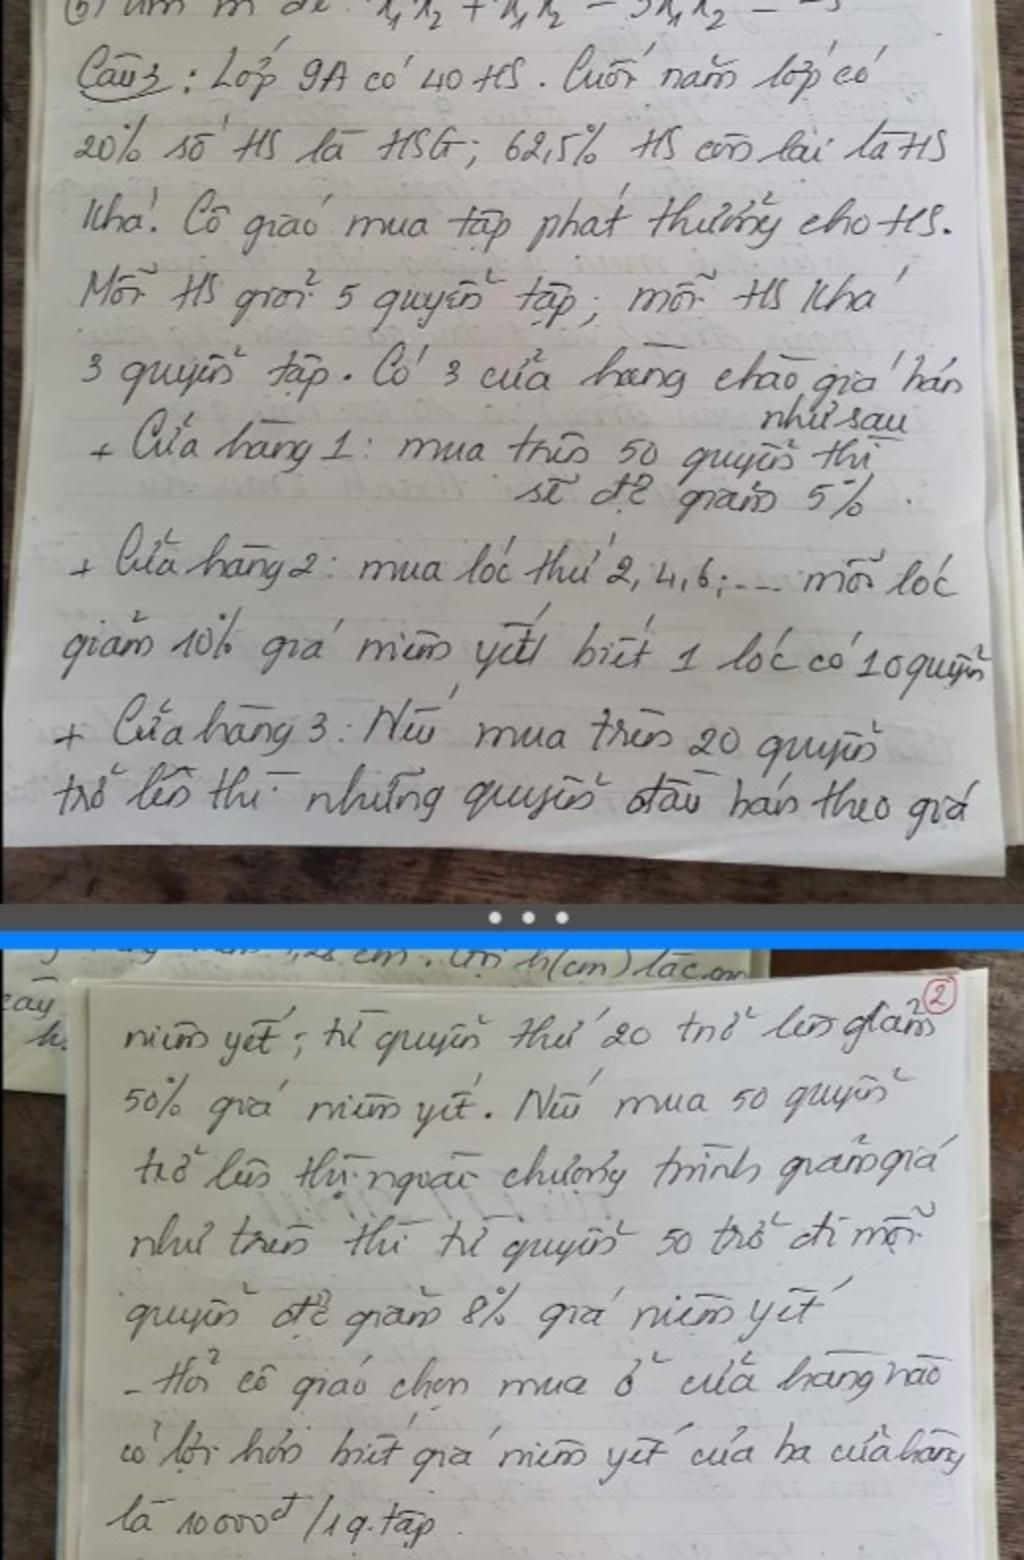 b) Tìm m để x₁²x₂ + x₁x₂² - 3x₁x₂ = -3
Câu 3: Lớp 9A có 40 HS. Cuối năm lớp có
20% số HS là HSG; 62,5% HS còn lại là HS
khá. Cô giáo mua tập phát thưởng cho HS.
Mỗi HS giỏi 5 quyển tập; mỗi HS khá
3 quyển tập. Có 3 cửa hàng chào giá bán
như sau
+ Cửa hàng 1: mua trên 50 quyển thì
sẽ đc giảm 5%.
+ Cửa hàng 2: mua lốc thứ 2, 4, 6; .... mỗi lốc
giảm 10% giá niêm yết biết 1 lốc có 10 quyển
+ Cửa hàng 3: Nếu mua trên 20 quyển
trở lên thì những quyển đầu bán theo giá
h(cm)
2
niêm yết; từ quyển thứ 20 trở lên giảm
50% giá niêm yết. Nếu mua 50 quyển
trở lên thì ngoài chương trình giảm giá
như trên thì từ quyển 50 trở đi mỗi
quyển đc giảm 8% giá niêm yết
- Hỏi cô giáo chọn mua ở cửa hàng nào
có lợi hơn biết giá niêm yết của ba cửa hàng
là 10000đ/1q.tập.